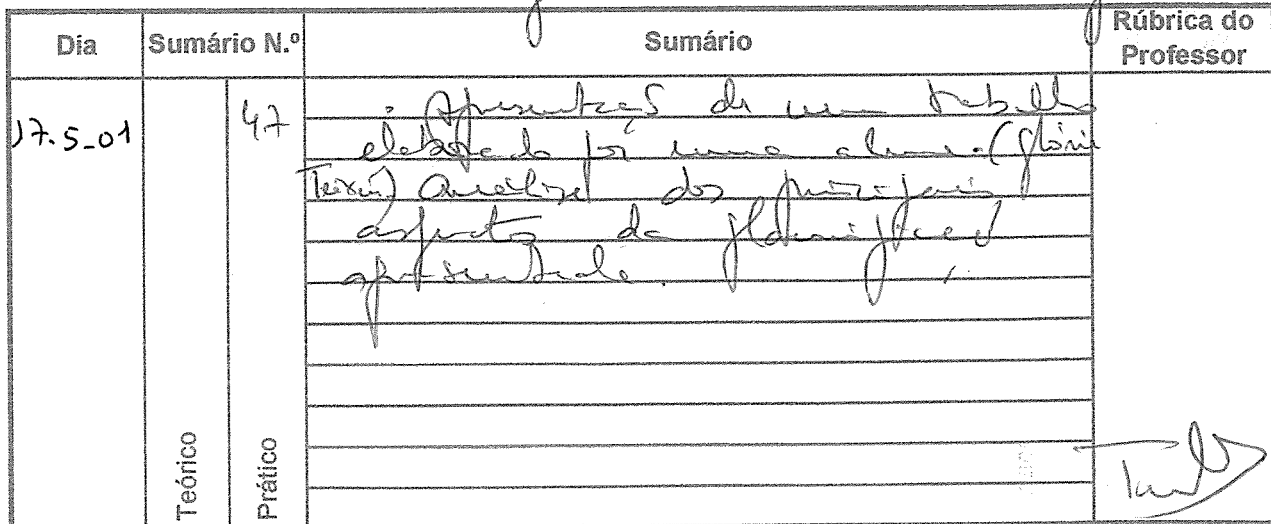 Dia Sumário N.º Sumário Rúbrica do Professor
17.5_01 47 Apresentação de um trabalho
elaborado por uma aluna (Glória
Teixeira) Análise dos principais
aspectos da planificação
apresentada.
Teórico Prático